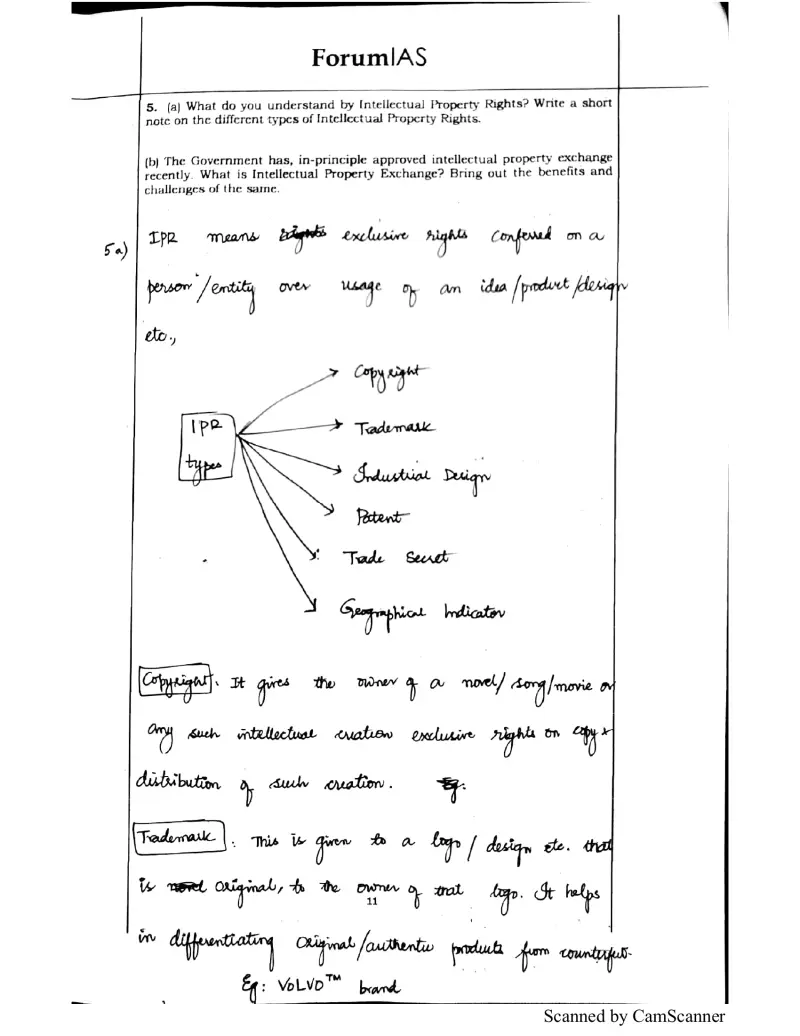 ForumIAS
5. (a) What do you understand by Intellectual Property Rights? Write a short
note on the different types of Intellectual Property Rights.
(b) The Government has, in-principle approved intellectual property exchange
recently. What is Intellectual Property Exchange? Bring out the benefits and
challenges of the same.
5a) IPR means exclusive rights conferred on a
person/entity over usage of an idea/product/design
etc.,
Copyright
IPR
types
Trademark
Industrial Design
Patent
Trade Secret
Geographical Indicator
Copyright: It gives the owner of a novel/song/movie or
any such intellectual creation exclusive rights on copy &
distribution of such creation.
Trademark: This is given to a logo/design etc. that
is original, to the owner of that logo. It helps
11
in differentiating original/authentic products from counterfeit.
Eg: VOLVO™ brand
Scanned by CamScanner